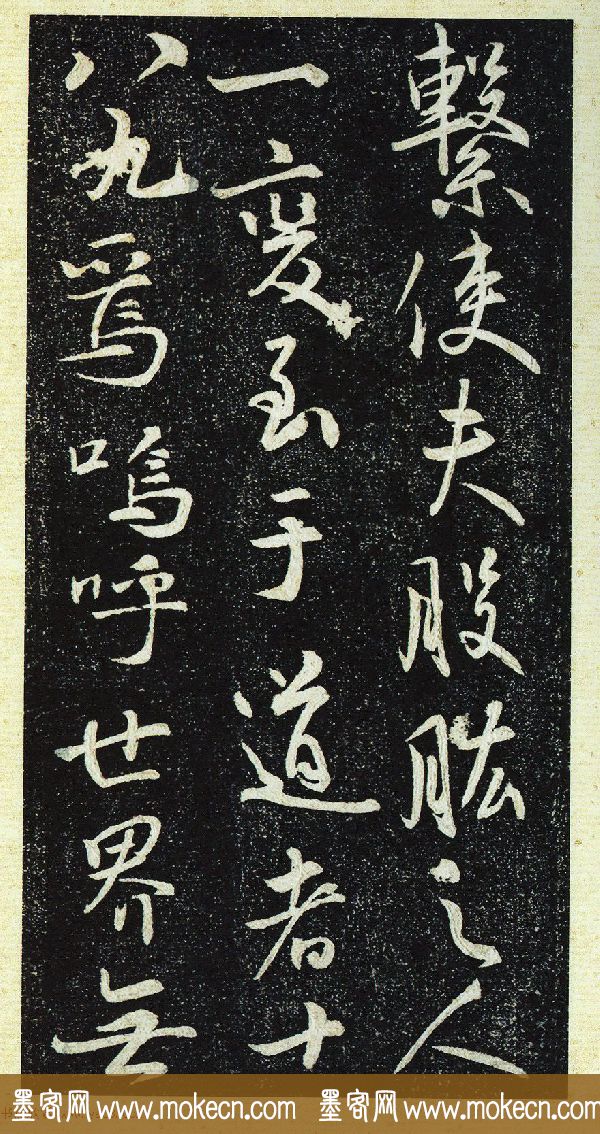 繫使夫股肱之人
一變至于道者十
八九焉嗚呼世界無
墨客网 www.mokecn.com 墨客网 www.mokecn.com